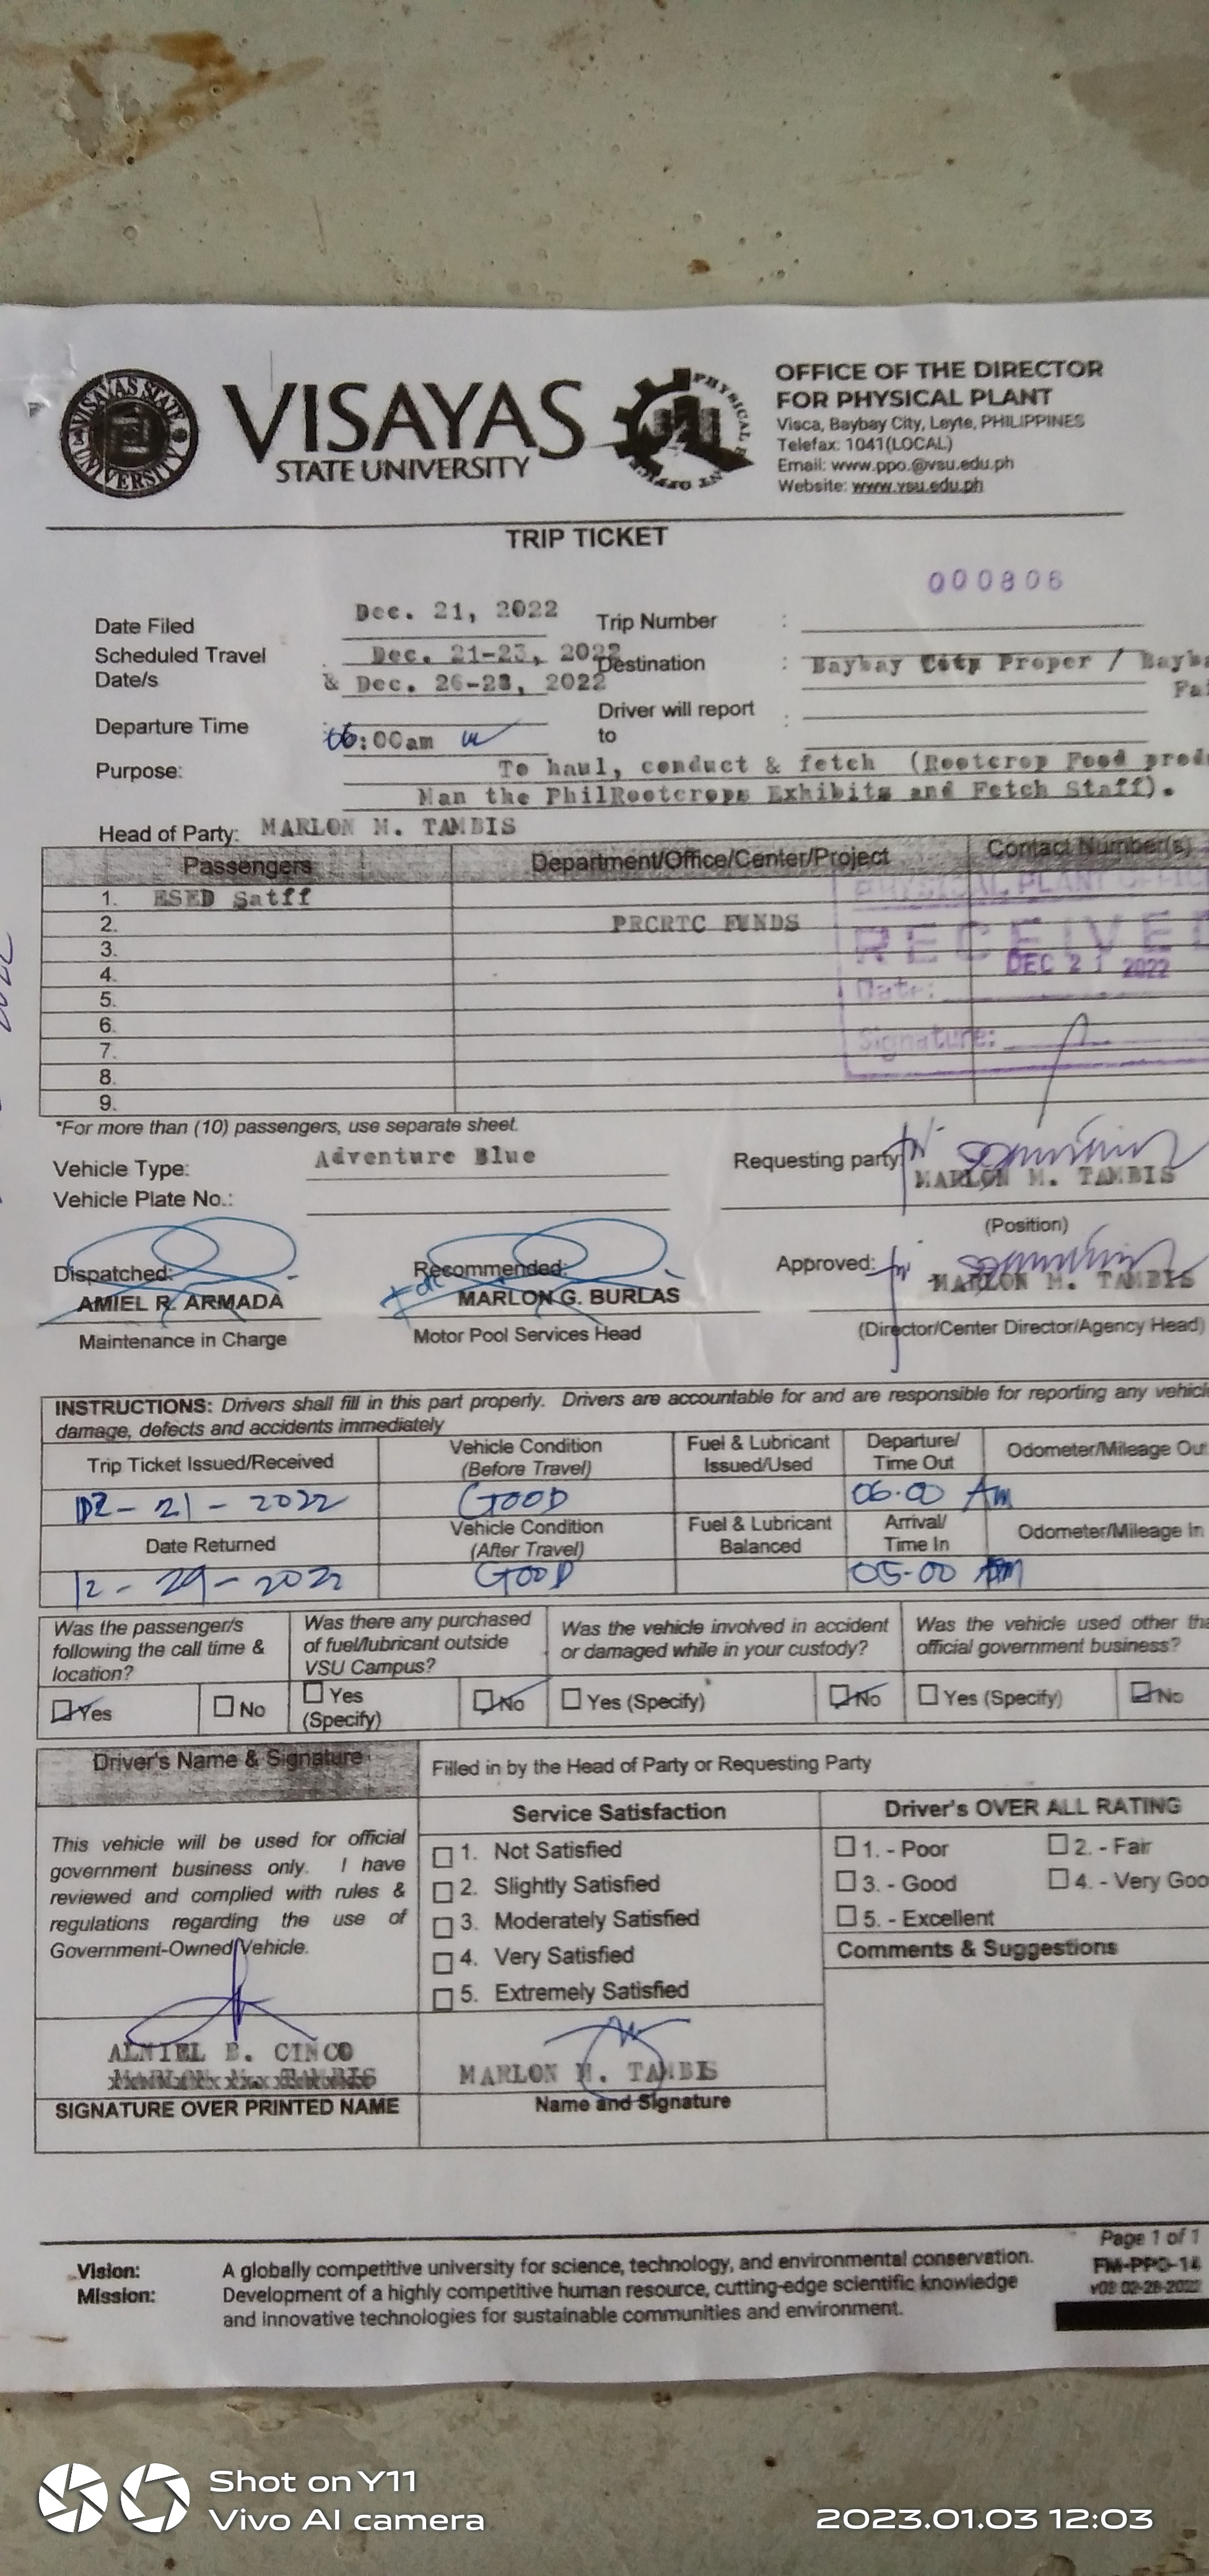 VISAYAS STATE UNIVERSITY
VISAYAS
STATE UNIVERSITY
PHYSICAL
OFFICE OF THE DIRECTOR
FOR PHYSICAL PLANT
Visca, Baybay City, Leyte, PHILIPPINES
Telefax: 1041(LOCAL)
Email: www.ppo.@vsu.edu.ph
Website: www.vsu.edu.ph
TRIP TICKET
000806
Date Filed Dec. 21, 2022 Trip Number :
Scheduled Travel Date/s : Dec. 21-23, 2022 & Dec. 26-28, 2022
Destination : Baybay City Proper / Bayba
Fai
Departure Time : 06:00am
Driver will report to :
Purpose: To haul, conduct & fetch (Rootcrop Food prod
Man the PhilRootcrops Exhibits and Fetch Staff).
Head of Party: MARLON M. TAMBIS
Passengers Department/Office/Center/Project Contact Number(s)
1. ESED Satff
2. PRCRTC FUNDS
3.
4.
5.
6.
7.
8.
9.
PHYSICAL PLANT OFFICE
RECEIVED
DEC 21 2022
Date:
Signature:
*For more than (10) passengers, use separate sheet.
Vehicle Type: Adventure Blue
Vehicle Plate No.:
Requesting party
MARLON M. TAMBIS
(Position)
Dispatched: Recommended: Approved:
AMIEL R. ARMADA For MARLON G. BURLAS MARLON M. TAMBIS
Maintenance in Charge Motor Pool Services Head (Director/Center Director/Agency Head)
INSTRUCTIONS: Drivers shall fill in this part properly. Drivers are accountable for and are responsible for reporting any vehicle
damage, defects and accidents immediately
Trip Ticket Issued/Received Vehicle Condition (Before Travel) Fuel & Lubricant Issued/Used Departure/ Time Out Odometer/Mileage Out
12-21-2022 GOOD 06:00 AM
Date Returned Vehicle Condition (After Travel) Fuel & Lubricant Balanced Arrival/ Time In Odometer/Mileage In
12-29-2022 GOOD 05:00
Was the passenger/s following the call time & location?
Was there any purchased of fuel/lubricant outside VSU Campus?
Was the vehicle involved in accident or damaged while in your custody?
Was the vehicle used other tha official government business?
Yes No Yes (Specify) No Yes (Specify) No Yes (Specify) No
Driver's Name & Signature
Filled in by the Head of Party or Requesting Party
Service Satisfaction Driver's OVER ALL RATING
This vehicle will be used for official
government business only. I have
reviewed and complied with rules &
regulations regarding the use of
Government-Owned Vehicle.
1. Not Satisfied
2. Slightly Satisfied
3. Moderately Satisfied
4. Very Satisfied
5. Extremely Satisfied
1. - Poor 2. - Fair
3. - Good 4. - Very Goo
5. - Excellent
Comments & Suggestions
ALNIEL B. CINCO
MARLON M. TAMBIS
SIGNATURE OVER PRINTED NAME
Name and Signature
Page 1 of 1
FM-PPO-14
v03 02-28-2022
Vision: A globally competitive university for science, technology, and environmental conservation.
Mission: Development of a highly competitive human resource, cutting-edge scientific knowledge
and innovative technologies for sustainable communities and environment.
Shot on Y11
Vivo AI camera
2023.01.03 12:03